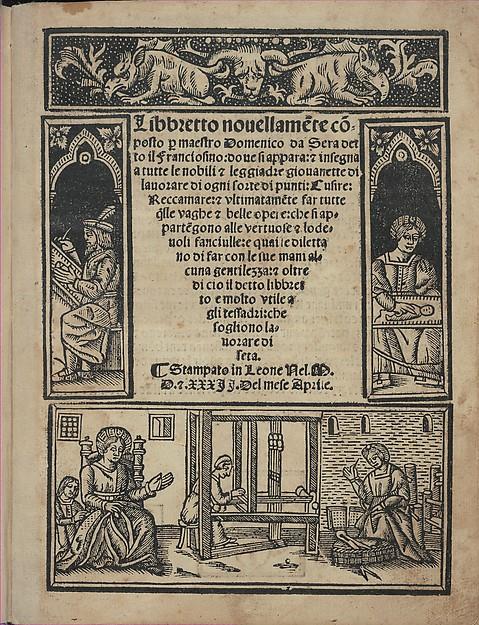 Libbretto nouellamēte cō-
posto p maestro Domenico da Sera det
to il Franciosino: doue si appara: ⁊ insegna
a tutte le nobili ⁊ leggiadre giouanette di
lauorare di ogni sorte di punti: Cusire:
Reccamare: ⁊ vltimatamēte far tutte
q̄lle vaghe ⁊ belle opere: che si ap-
partēgono alle vertuose ⁊ lode-
uoli fanciulle: e quali se diletta
no di far con le sue mani al-
cuna gentilezza: ⁊ oltre
di cio il detto libbret
to e molto vtile a
gli tessadri: che
sogliono la-
uorare di
seta.
¶ Stampato in Leone Nel. M.
D. ⁊. XXXII. Del mese Aprile.